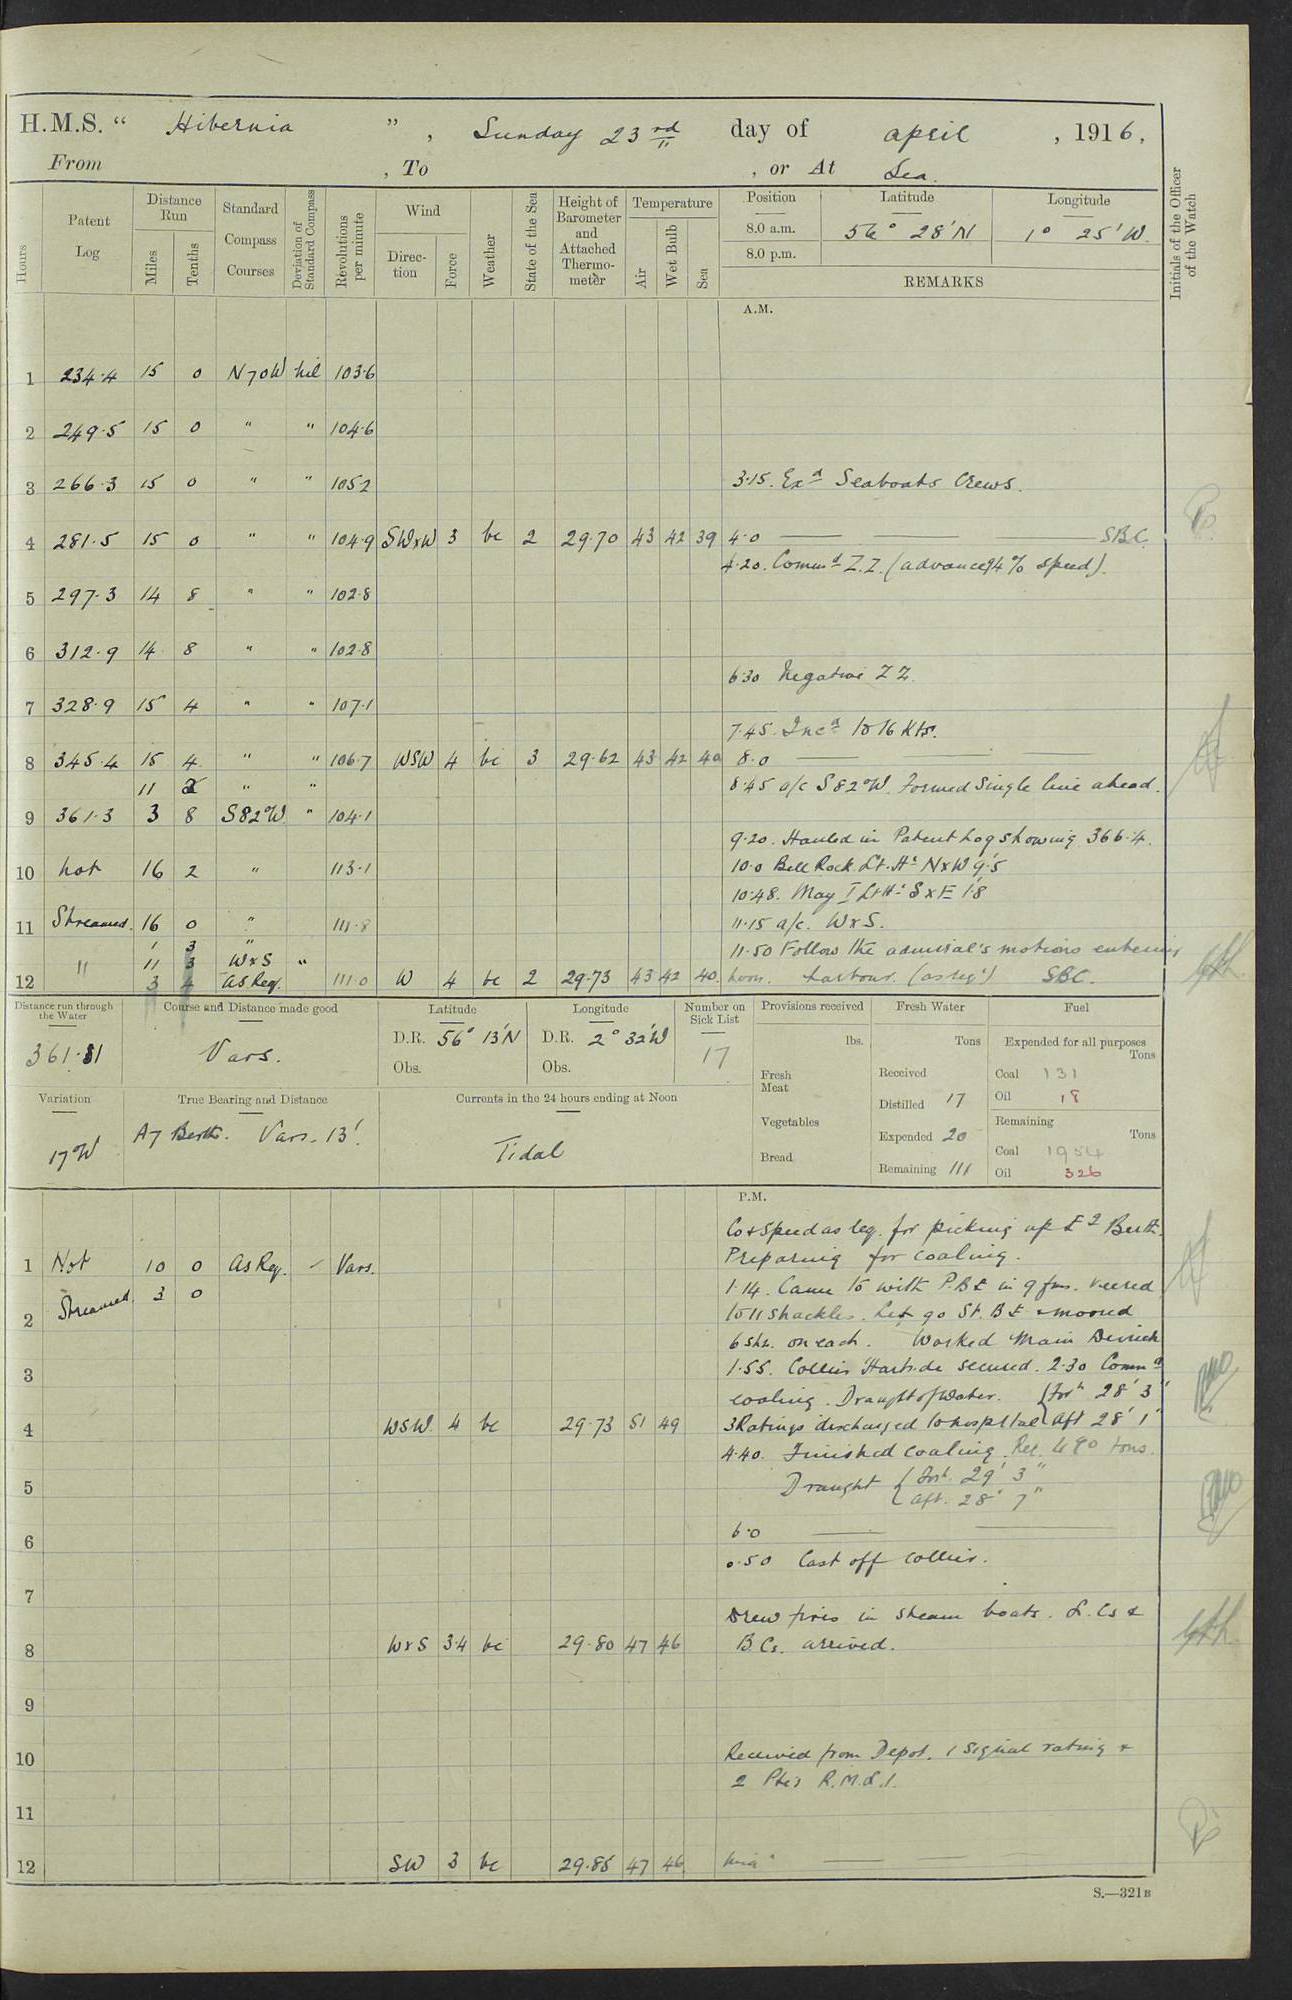 H.M.S. “ Hibernia ”, Sunday 23rd day of april, 1916,
From , To , or At Sea.
Hours
Patent Log
Distance Run
Miles
Tenths
Standard Compass Courses
Deviation of Standard Compass
Revolutions per minute
Wind
Direc-tion
Force
Weather
State of the Sea
Height of Barometer and Attached Thermo-meter
Temperature
Air
Wet Bulb
Sea
Position
8.0 a.m.
8.0 p.m.
Latitude
56° 28' N
Longitude
1° 25' W.
REMARKS
Initials of the Officer of the Watch
A.M.
1 234.4 15 0 N70W nil 103.6
2 249.5 15 0 " " 104.6
3 266.3 15 0 " " 105.2 3.15. Exd Seaboats Crews.
4 281.5 15 0 " " 104.9 SWxW 3 bc 2 29.70 43 42 39 4.0 SBC.
4.20. Commd Z.Z. (advance 94% speed).
5 297.3 14 8 " " 102.8
6 312.9 14 8 " " 102.8
6.30 Negative Z Z.
7 328.9 15 4 " " 107.1
7.45. Incd to 16 Kts.
8 345.4 15 4 " " 106.7 WSW 4 bc 3 29.62 43 42 40 8.0
11 2 " " 8.45 a/c S82°W. Formed Single line ahead.
9 361.3 3 8 S82°W. " 104.1
9.20. Hauled in Patent Log showing 366.4.
10 not 16 2 " 113.1 10.0 Bell Rock Lt. Hs NxW 9'.5
10.48. May I Lt Hs SxE 1'.8
11 Streamed. 16 0 " 111.8 11.15 a/c. WxS.
1 3 " 11.50 Follow the admiral's motions entering
" 11 3 WxS "
12 3 4 as Req. 111.0 W 4 bc 2 29.73 43 42 40. noon. harbour. (as reqd) SBC.
Distance run through the Water
361.81
Course and Distance made good
Vars.
Latitude
D.R. 56° 13'N
Obs.
Longitude
D.R. 2° 32'W
Obs.
Number on Sick List
17
Provisions received
lbs.
Fresh Meat
Vegetables
Bread
Fresh Water
Tons
Received
Distilled 17
Expended 20
Remaining 111
Fuel
Expended for all purposes
Tons
Coal 131
Oil 18
Remaining
Tons
Coal 1954
Oil 326
Variation
17°W
True Bearing and Distance
A7 Berth. Vars. 13'.
Currents in the 24 hours ending at Noon
Tidal
P.M.
Co & Speed as req. for picking up E2 Berth.
1 Not 10 0 As Req. Vars. Preparing for coaling.
Streamed. 3 0 1.14. Came to with P.Br in 9 fms. veered
2 to 11 shackles. Let go St. Br & moored
6 shs. on each. Worked Main Derrick
3 1.55. Collier Hartside secured. 2.30 Commd
coaling. Draught of Water. { Ford 28' 3"
4 WSW. 4 bc 29.73 51 49 3 Ratings discharged to hospital { Aft 28' 1"
4.40. Finished coaling. Rec. 490 tons.
5 Draught { Ford. 29' 3"
{ Aft. 28' 7"
6 6.0
.50 Cast off collier.
7
Drew fires in steam boats. L.Cs &
8 WxS 3.4 bc 29.80 47 46 B.Cs. arrived.
9
10 Received from Depot. 1 Signal rating &
2 Ptes R.M.L.I.
11
12 SW 3 bc 29.85 47 46.
S.—321B